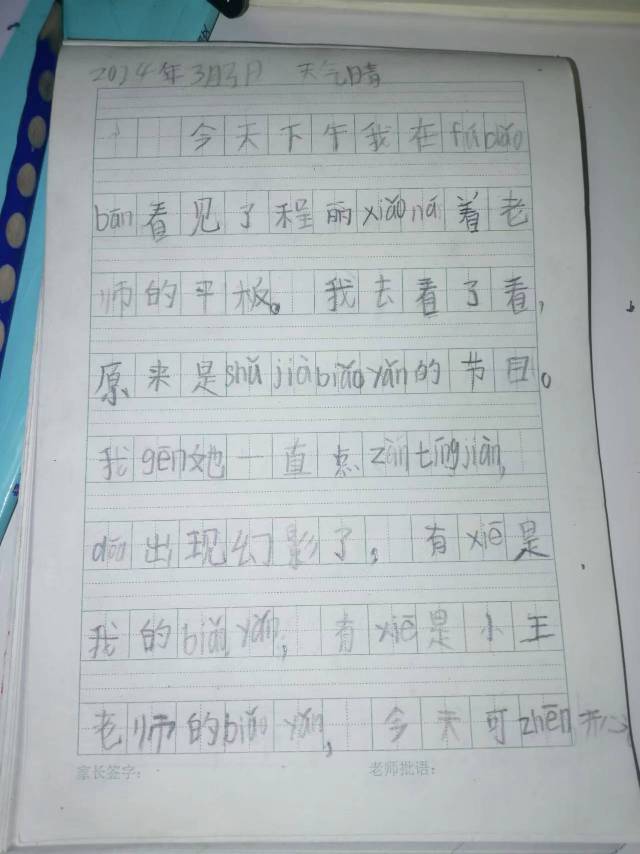 2024年3月3日 天气晴
今天下午我在fǔdǎo
bān看见了程丽xiǎo ná着老
师的平板。我去看了看,
原来是shǔ jià biǎo yǎn的节目。
我gēn她一直点zàn tíng jiàn,
dōu出现幻影了,有xiē是
我的biǎo yǎn,有xiē是小王
老师的biǎo yǎn,今天可zhēn开心
家长签字:
老师批语: